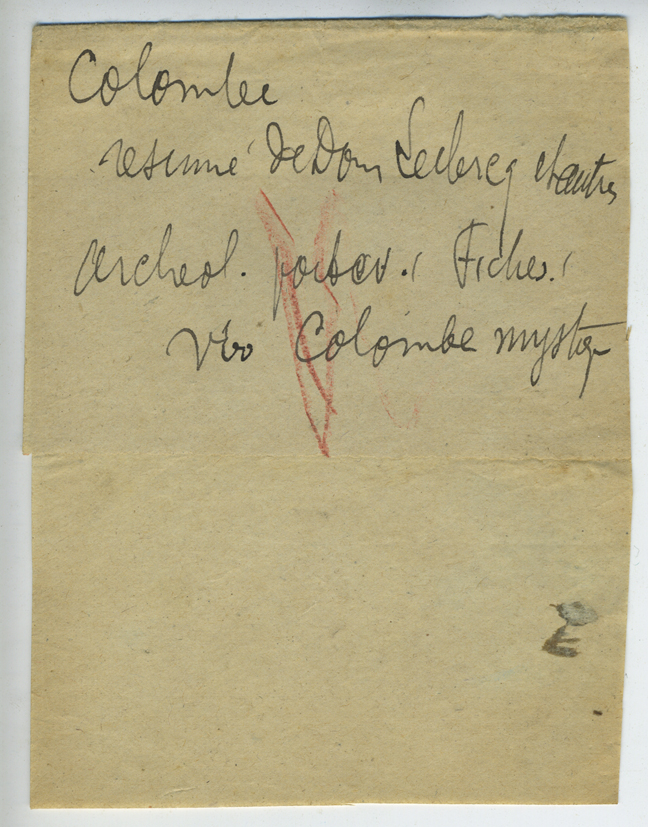 Colombe
resumé de Dom Leclercq et autres
archeol. Fiches
vbo Colombe mystiq